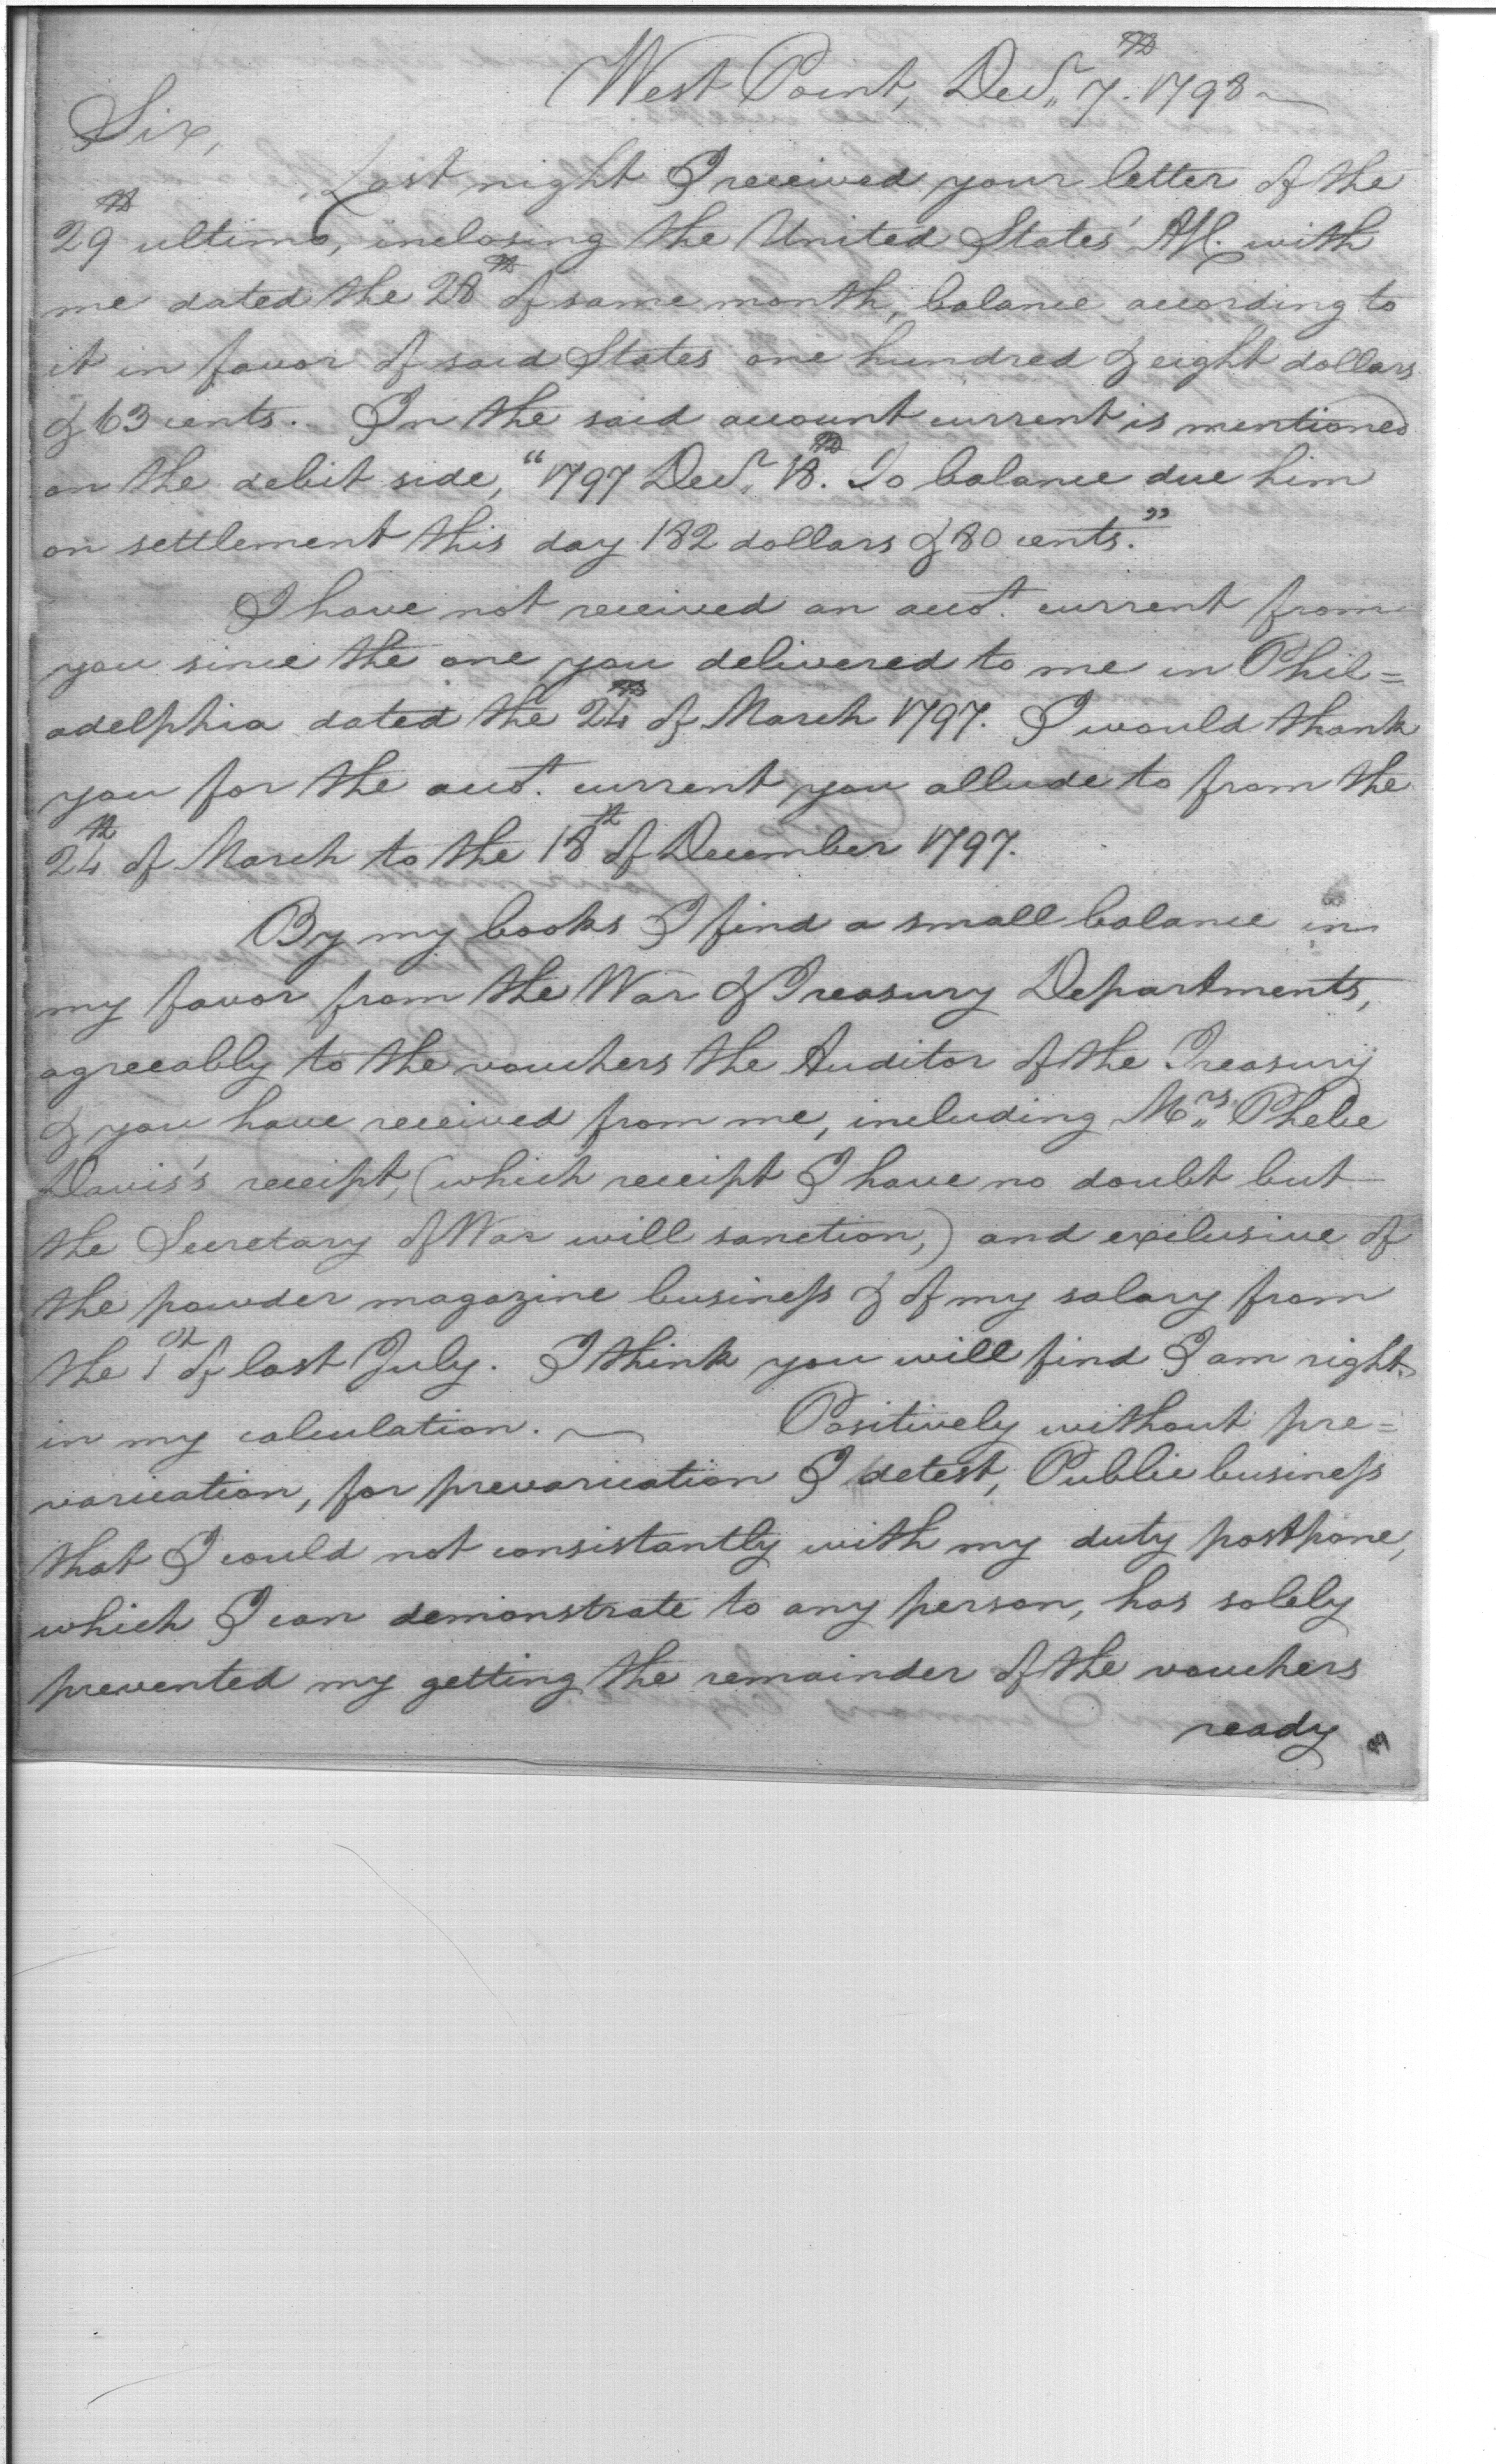 West Point, Decr. 7th. 1798
Sir,
Last night I received your letter of the
29th ultimo, inclosing the United States' A/C. with
me dated the 28th of same month, balance according to
it in favor of said States one hundred & eight dollars
& 63 cents. In the said account current is mentioned
on the debit side, "1797 Decr. 18th. To balance due him
on settlement this day 182 dollars & 80 cents."
I have not received an acct. current from
you since the one you delivered to me in Phil=
adelphia dated the 24th of March 1797. I would thank
you for the acct. current you allude to from the
24th of March to the 18th of December 1797.
By my books I find a small balance in
my favor from the War & Treasury Departments,
agreeably to the vouchers the Auditor of the Treasury
& you have received from me, including Mrs. Phebe
Davis's receipt, (which receipt I have no doubt but
the Secretary of War will sanction,) and exclusive of
the powder magazine business & of my salary from
the 1st of last July. I think you will find I am right
in my calculation. Positively without pre=
varication, for prevarication I detest, Public business
that I could not consistantly with my duty postpone,
which I can demonstrate to any person, has solely
prevented my getting the remainder of the vouchers
ready